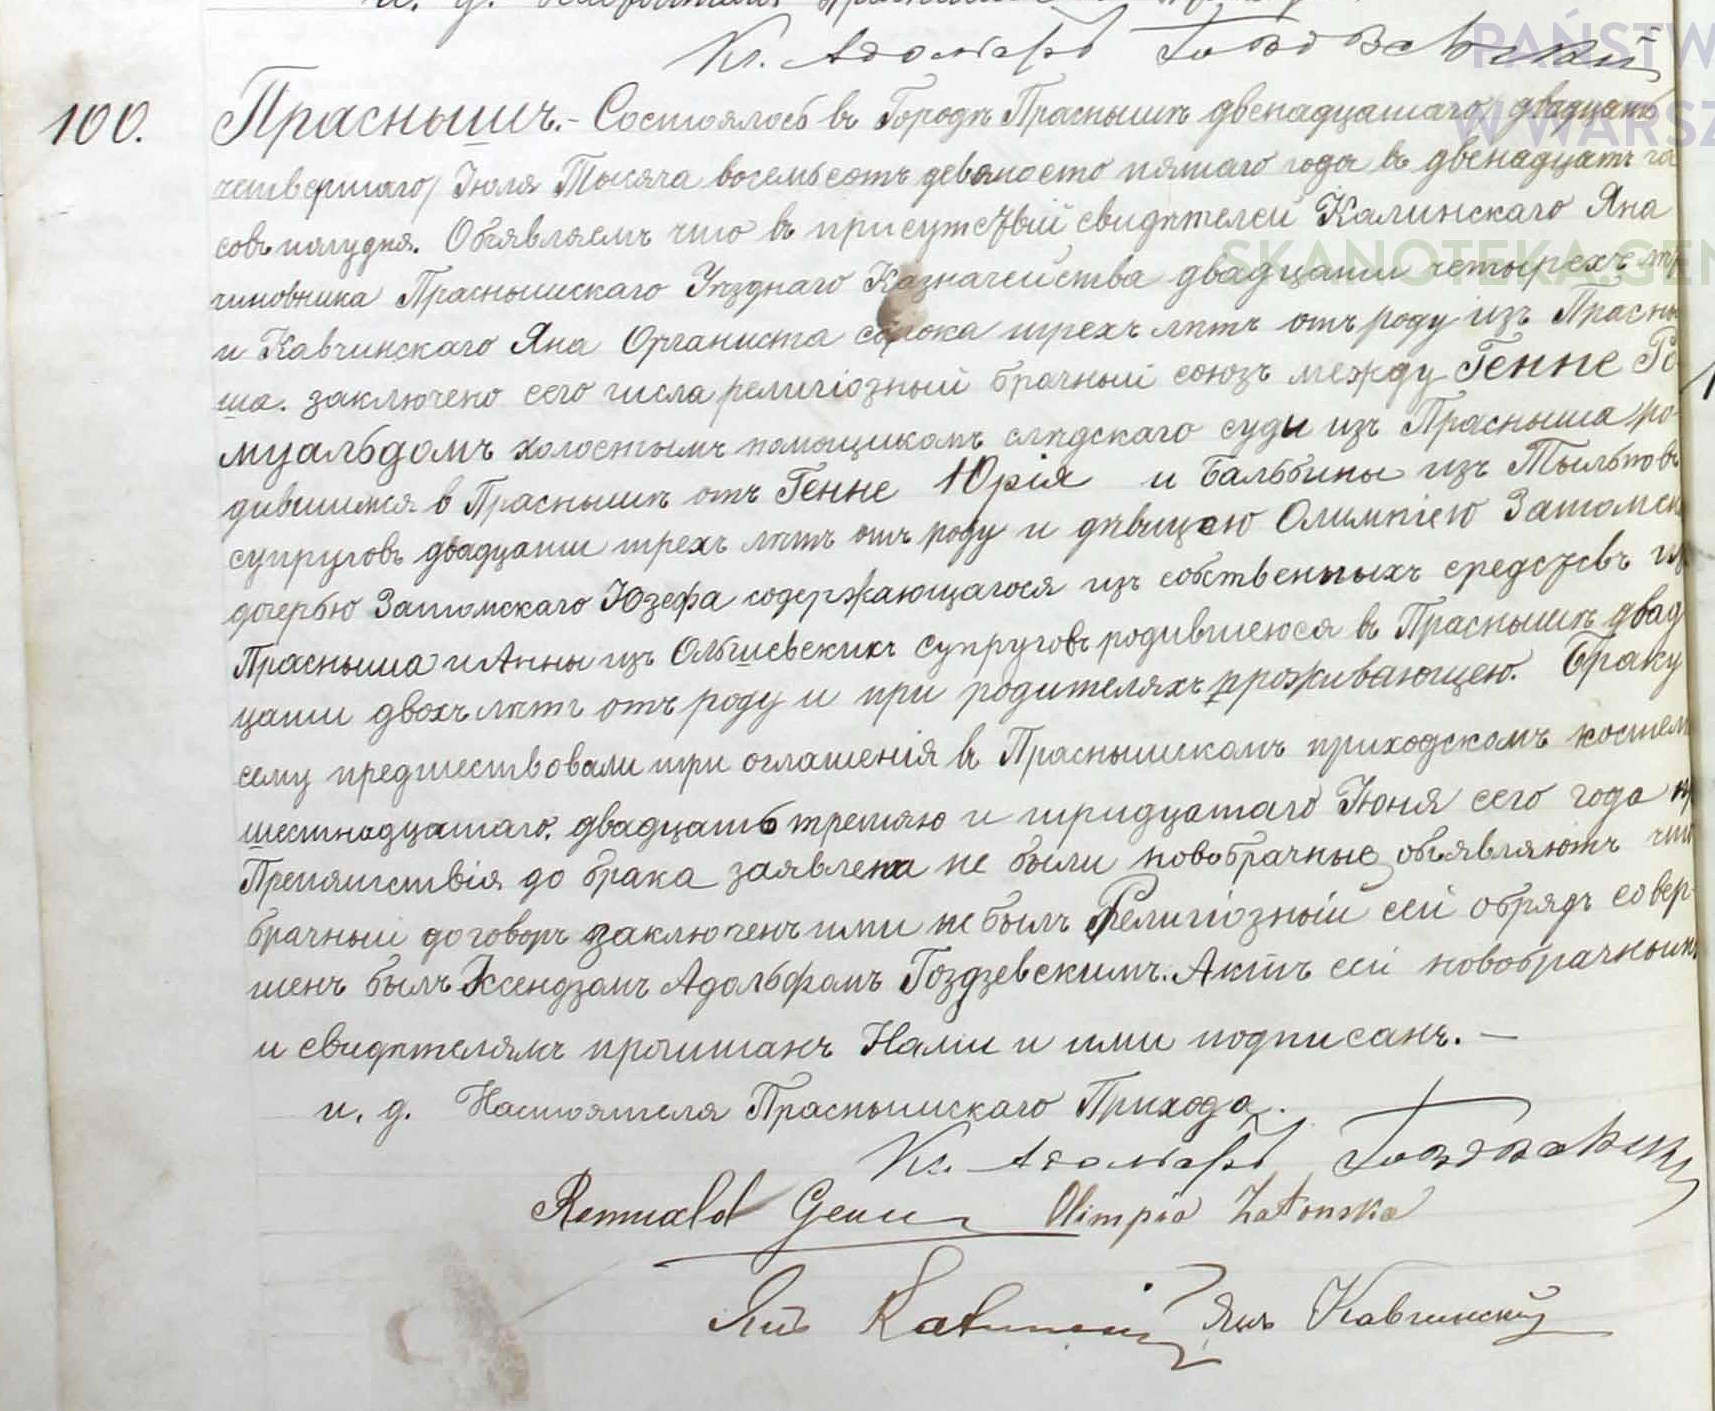 Кс. Адольфъ Гоздзевскій
PAŃSTW
W WARSZ
SKANOTEKA.GEN
100. Праснышъ. - Состоялось въ Городѣ Праснышѣ двенадцатаго /двадцать
четвертаго/ Іюля Тысяча восемьсотъ девяносто пятаго года въ двенадцать ча
совъ полудня. Объявляемъ что въ присутствіи свидѣтелей Калинскаго Яна
чиновника Праснышскаго Уѣзднаго Казначейства двадцати четырехъ лѣтъ
и Кавчинскаго Яна Органиста сорока трехъ лѣтъ отъ роду изъ Прасны
ша. заключено сего числа религіозный брачный союзъ между Генне Ро
муальдомъ холостымъ помощикомъ слѣдскаго суды изъ Прасныша ро-
дившимся в Праснышѣ отъ Генне Юрія и Бальбины изъ Тыльпов
супруговъ двадцати трехъ лѣтъ отъ роду и дѣвицею Олимпіею Затомск
дочерью Затомскаго Юзефа содержающагося изъ собственныхъ средствъ из
Прасныша и Анны изъ Ольшевскихъ супруговъ родившеюся въ Праснышѣ двад
цати двохъ лѣтъ отъ роду и при родителяхъ проживающею. Браку
сему предшествовали три оглашенія въ Праснышскомъ приходскомъ костел
шестнадцатаго, двадцать третяго и тридцатаго Іюня сего года
Препятствія до брака заявлена не были новобрачные объявляютъ что
брачный договоръ заключенъ ими не былъ Религіозный сей обрядъ совер-
шенъ былъ Ксендзомъ Адольфомъ Гоздзевскимъ. Актъ сей новобрачным
и свидѣтелямъ прочитанъ Нами и ими подписанъ. —
и. д. Настоятеля Праснышскаго Прихода.
Кс. Адольфъ Гоздзевскій
Romuald Genne Olimpia Zatonska
Янъ Кавчинскій